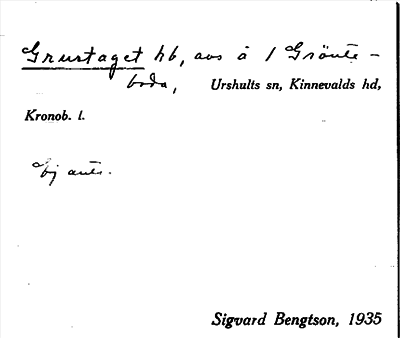 Grustaget hb, avs å 1 Grönte-
boda, Urshults sn, Kinnevalds hd,
Kronob. l.
Ej ant.
Sigvard Bengtson, 1935